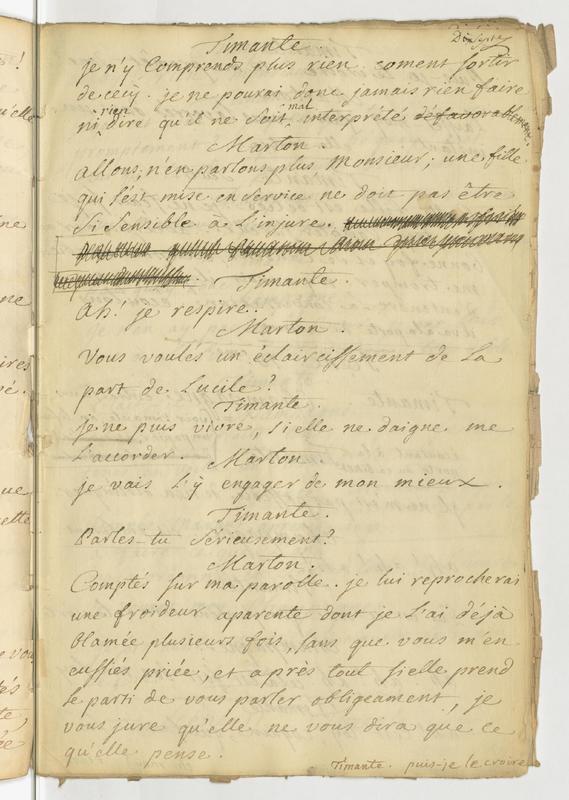 Timante.
je n'y Comprends plus rien. coment sortir
de cecy. je ne pourai donc jamais rien faire
rien mal
ni dire qu'il ne soit interprété défavorablement.
Marton.
allons, n'en parlons plus Monsieur; une fille
qui s'est mise en service ne doit pas être
si sensible à l'injure.
Timante.
Ah! je respire..
Marton.
Vous voulés un éclaircissement de la
part de Lucile?
Timante.
je ne puis vivre, si elle ne daigne me
l'accorder.
Marton.
je vais l'y engager de mon mieux.
Timante.
Parles-tu sérieusement?
Marton.
Comptés sur ma parolle. je lui reprocherai
une froideur aparente dont je l'ai déjà
blamée plusieurs fois, sans que vous m'en
eussiés priée, et après tout si elle prend
le parti de vous parler obligeament, je
vous jure qu'elle ne vous dira que ce
qu'elle pense.
Timante. puis-je le croire